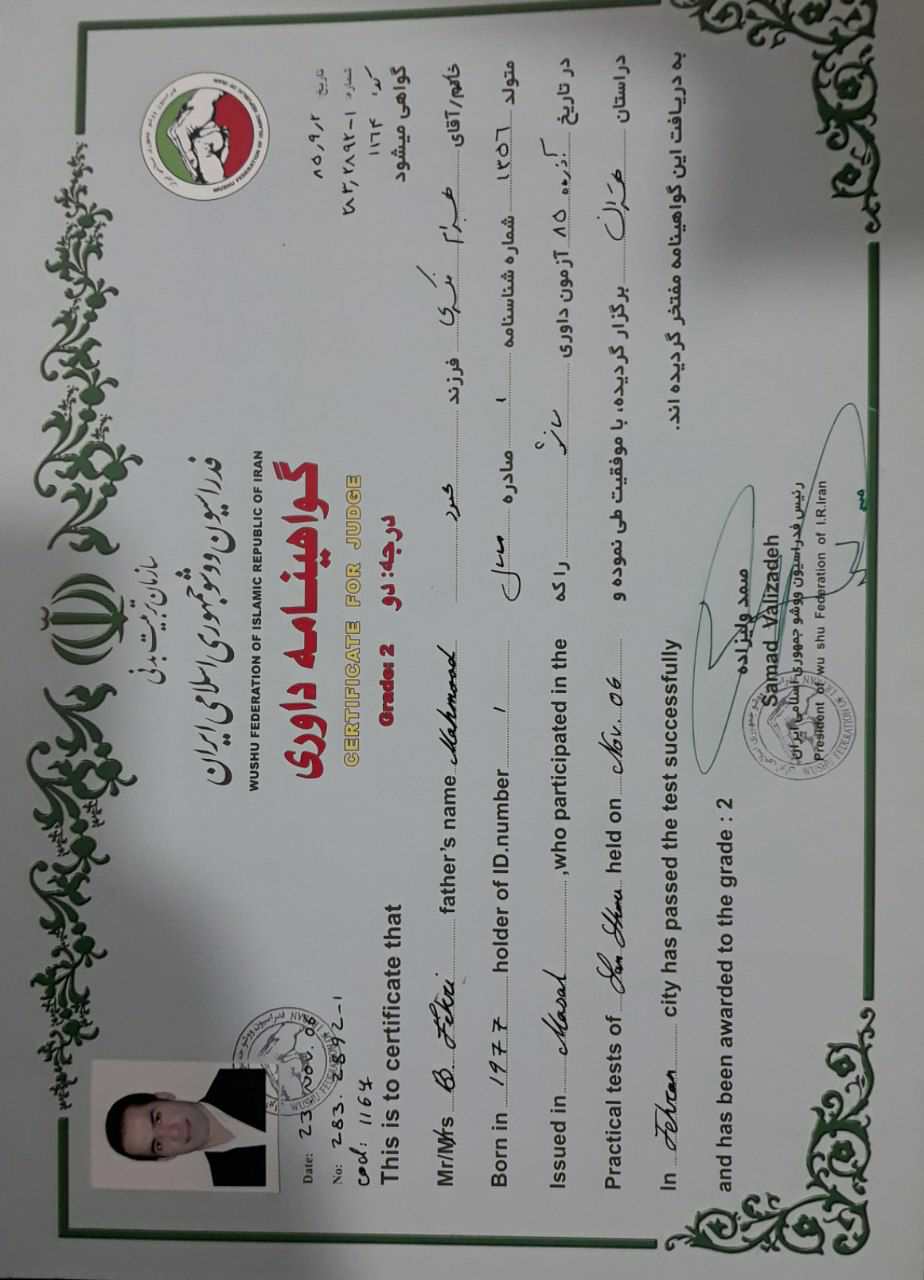 سازمان تربیت بدنی
فدراسیون ووشو جمهوری اسلامی ایران
WUSHU FEDERATION OF ISLAMIC REPUBLIC OF IRAN
گواهینامه داوری
CERTIFICATE FOR JUDGE
Grade: 2 درجه: دو
WUSHU FEDERATION OF ISLAMIC REPUBLIC OF IRAN
Date: 23 Nov. 06
No: 283. 2892-1
cod: 1164
This is to certificate that
Mr/Mrs B. Fekri father's name Mahmood
Born in 1977 holder of ID.number 1
Issued in Masal ,who participated in the
Practical tests of San Shou held on Nov. 06
In Tehran city has passed the test successfully
and has been awarded to the grade : 2
تاریخ ۸۵٫۹٫۲
شماره ۲۸۳٫۲۸۹۲-۱
کد: ۱۱۶۴
گواهی میشود
خانم/آقای فکری فرزند محمود
متولد ۱۳۵۶ شماره شناسنامه ۱ صادره ماسال
در تاریخ آذرماه ۸۵ آزمون داوری ساندا را که
دراستان تهران برگزار گردیده، با موفقیت طی نموده و
به دریافت این گواهینامه مفتخر گردیده اند.
صمد ولیزاده
Samad Valizadeh
رئیس فدراسیون ووشو جمهوری اسلامی ایران
President of wu shu Federation of I.R.Iran